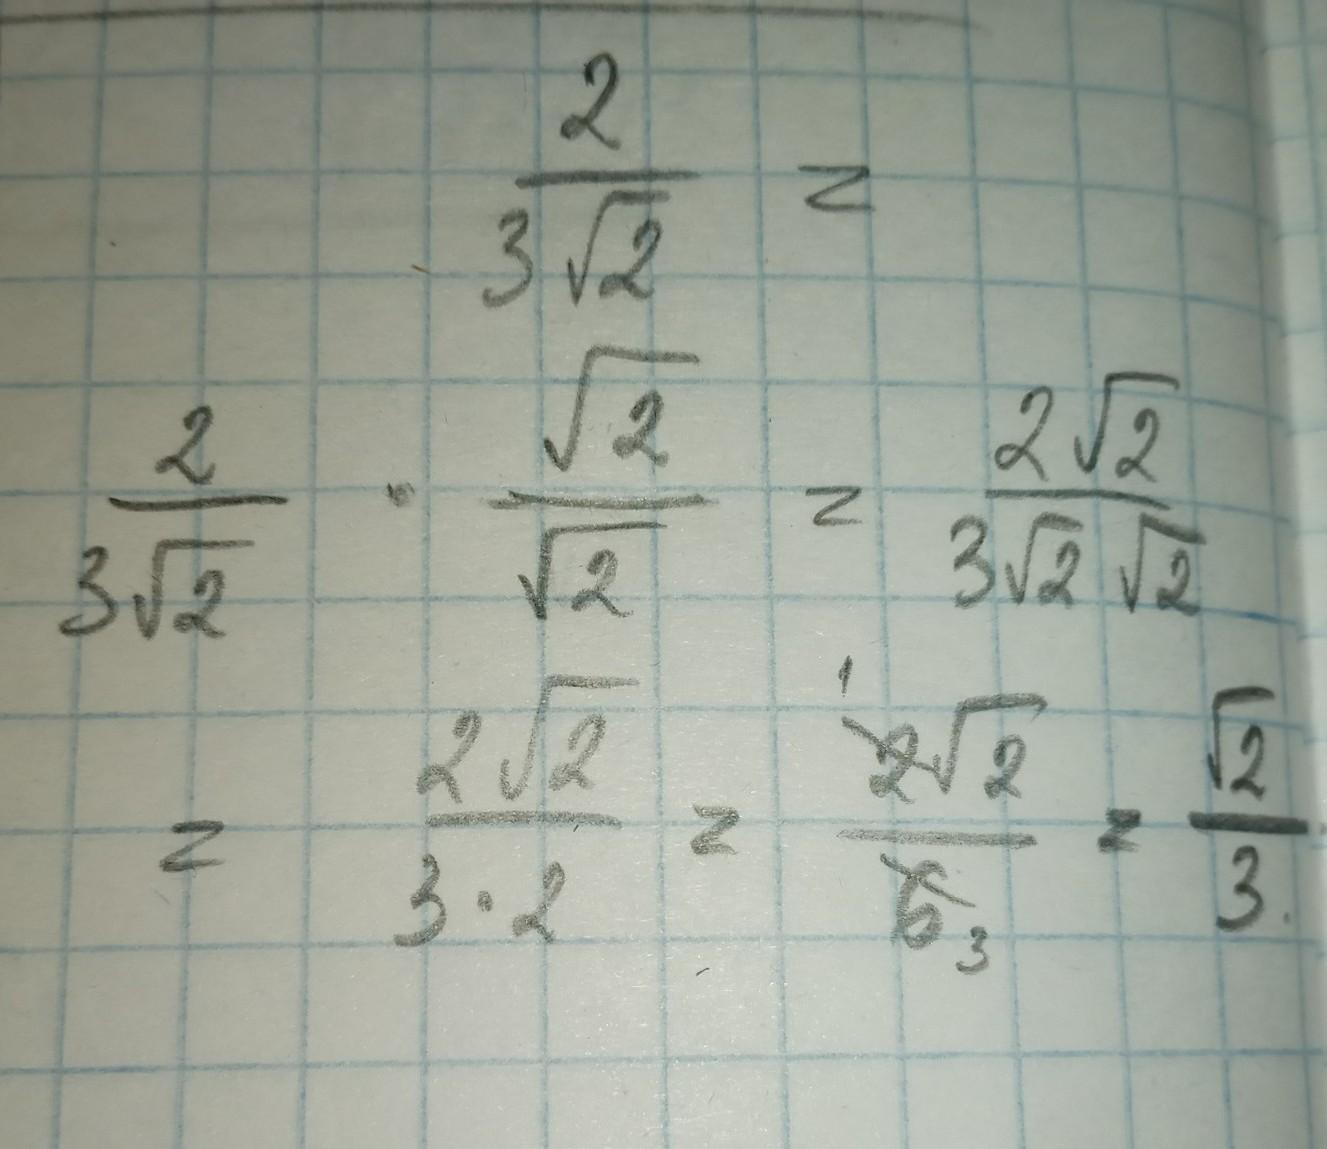 2/(3√2) =
2/(3√2) · √2/√2 = 2√2/(3√2 √2)
= 2√2/(3·2) = ¹2√2/6₃ = √2/3.